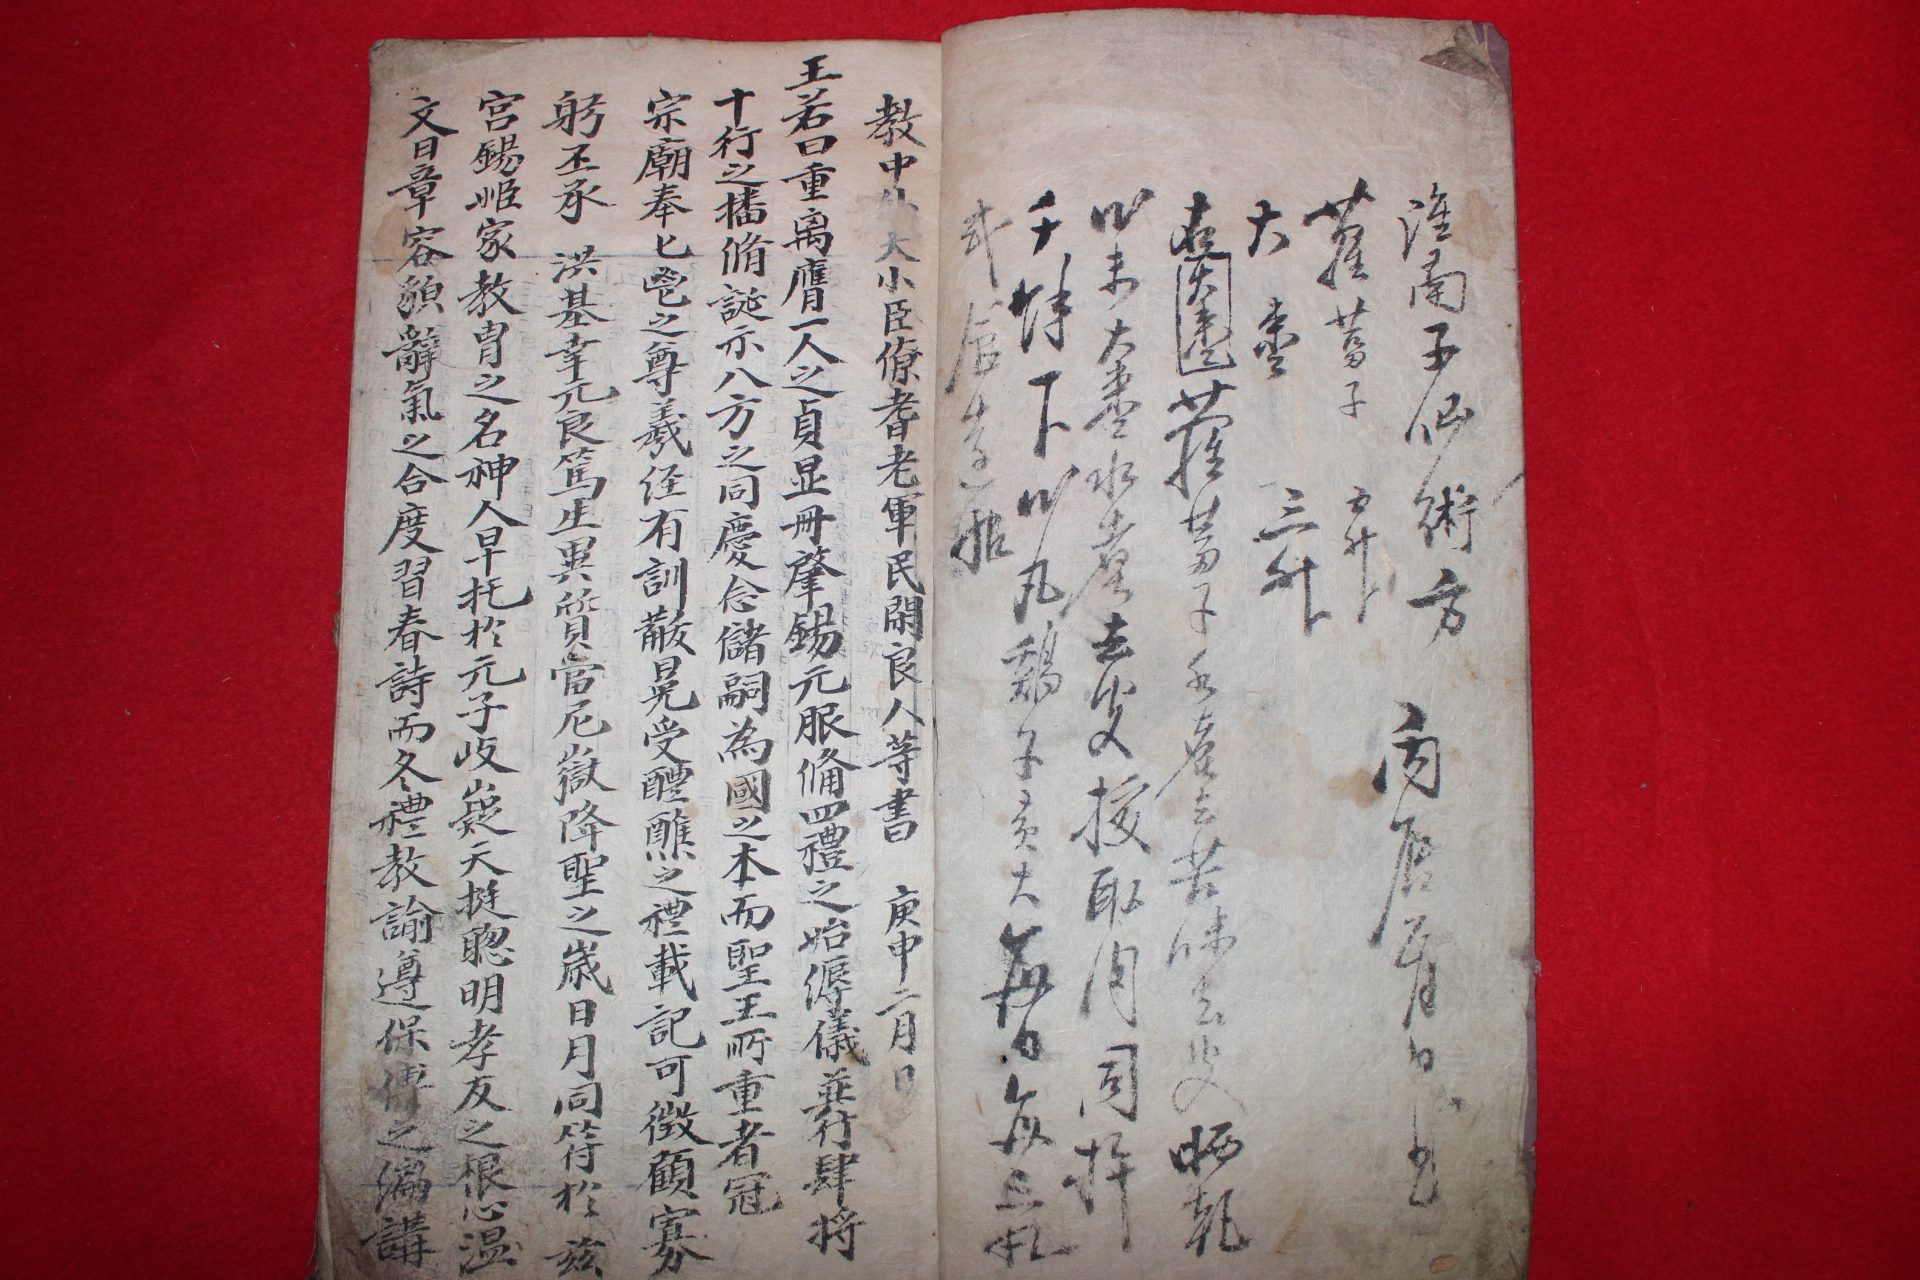 淮南子仙術方 丙辰 月 日
蘿葍子 五升
大棗 三升
右 蘿葍子 水煮去苦味去皮晒乾
以末大棗水煮去皮按取肉同拌
千 下以丸鷄子黃大每日 三
教中外大小臣僚耆老軍民閑良人等書 庚申二月日
王若曰重离膺一人之貞显冊肇錫元服脩四禮之始縟儀並行肆將
十行之播脩誕示八方之同慶念儲嗣為國之本而聖王所重者冠
宗廟奉匕鬯之尊羲徑有訓黻冕受醴醮之禮載記可徵顧寡
躬丕承 洪基幸元良篤生異質當尼嶽降聖之歲日月同符於玆
宮錫姬家教胄之名神人早托於元子岐嶷天挺聰明孝友之根心温
文日章容顏辭氣之合度習春詩而冬禮教諭遵保傅之 講